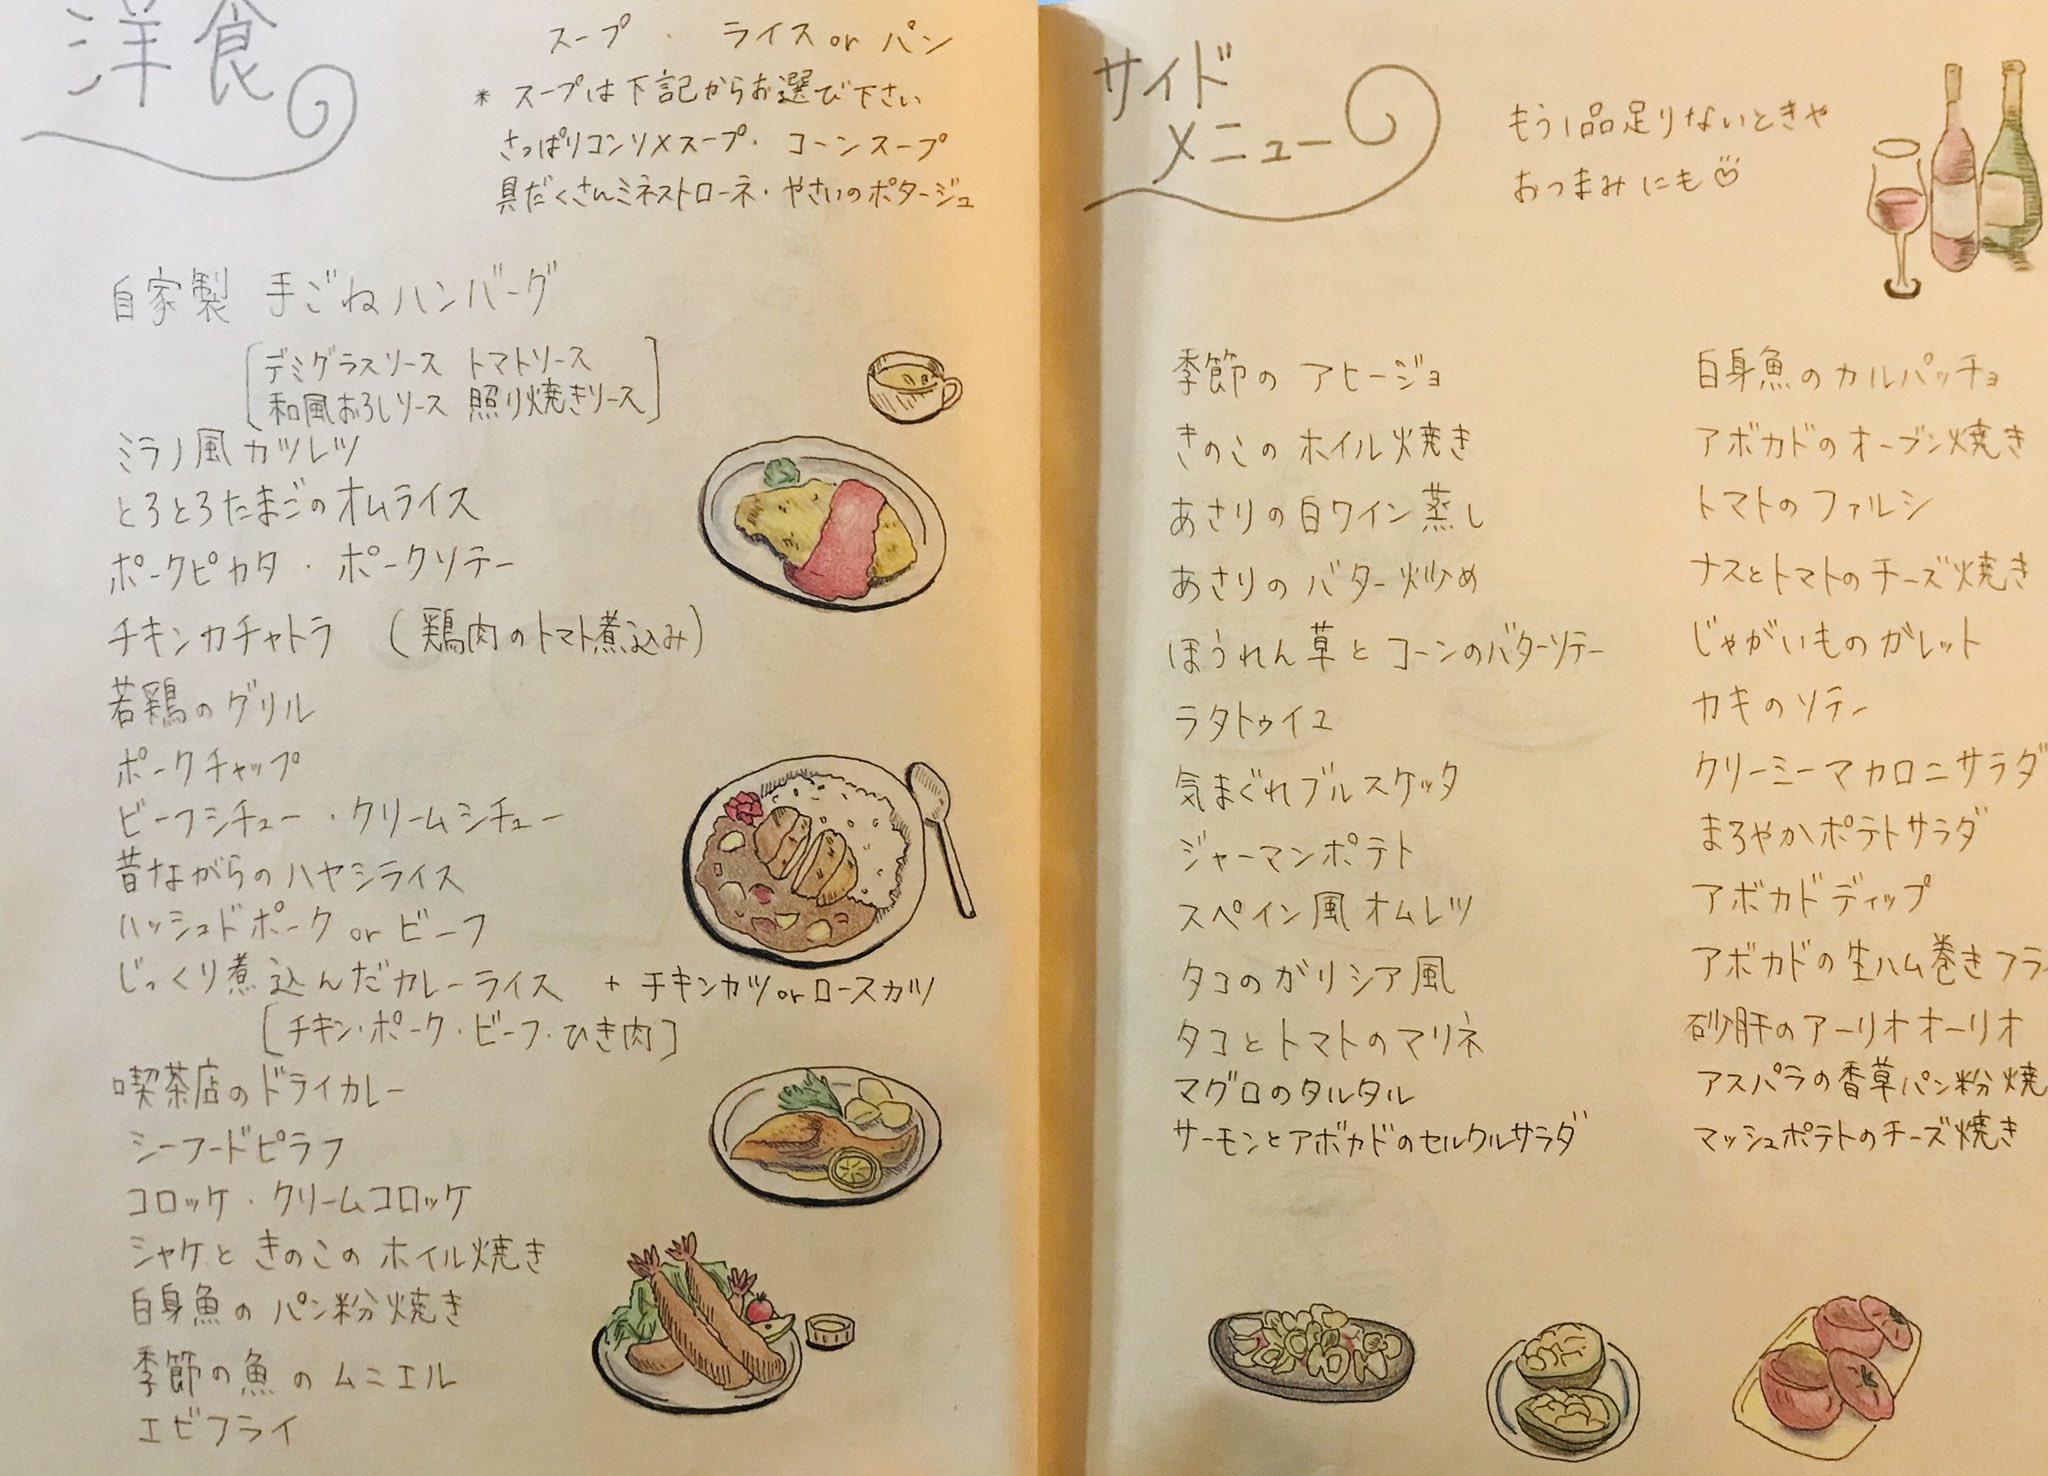 洋食
スープ ・ ライス or パン
* スープは下記からお選び下さい
さっぱりコンソメスープ・ コーンスープ
具だくさんミネストローネ・やさいのポタージュ
自家製 手ごねハンバーグ
[デミグラスソース トマトソース
和風おろしソース 照り焼きソース]
ミラノ風カツレツ
とろとろたまごのオムライス
ポークピカタ ・ ポークソテー
チキンカチャトラ (鶏肉のトマト煮込み)
若鶏のグリル
ポークチャップ
ビーフシチュー ・ クリームシチュー
昔ながらのハヤシライス
ハッシュドポーク or ビーフ
じっくり煮込んだカレーライス + チキンカツorロースカツ
[チキン・ポーク・ビーフ・ひき肉]
喫茶店のドライカレー
シーフードピラフ
コロッケ ・ クリームコロッケ
シャケときのこの ホイル焼き
白身魚の パン粉焼き
季節の魚の ムニエル
エビフライ
サイド
メニュー
もう1品足りないときや
おつまみにも♡
季節の アヒージョ
きのこの ホイル焼き
あさりの白ワイン蒸し
あさりの バター炒め
ほうれん草と コーンのバターソテー
ラタトゥイユ
気まぐれブルスケッタ
ジャーマンポテト
スペイン風オムレツ
タコのガリシア風
タコとトマトのマリネ
マグロのタルタル
サーモンとアボカドのセルクルサラダ
白身魚のカルパッチョ
アボカドのオーブン焼き
トマトのファルシ
ナスとトマトのチーズ焼き
じゃがいものガレット
カキのソテー
クリーミーマカロニサラダ
まろやかポテトサラダ
アボカドディップ
アボカドの生ハム巻きフラ
砂肝のアーリオオーリオ
アスパラの香草パン粉焼
マッシュポテトのチーズ焼き